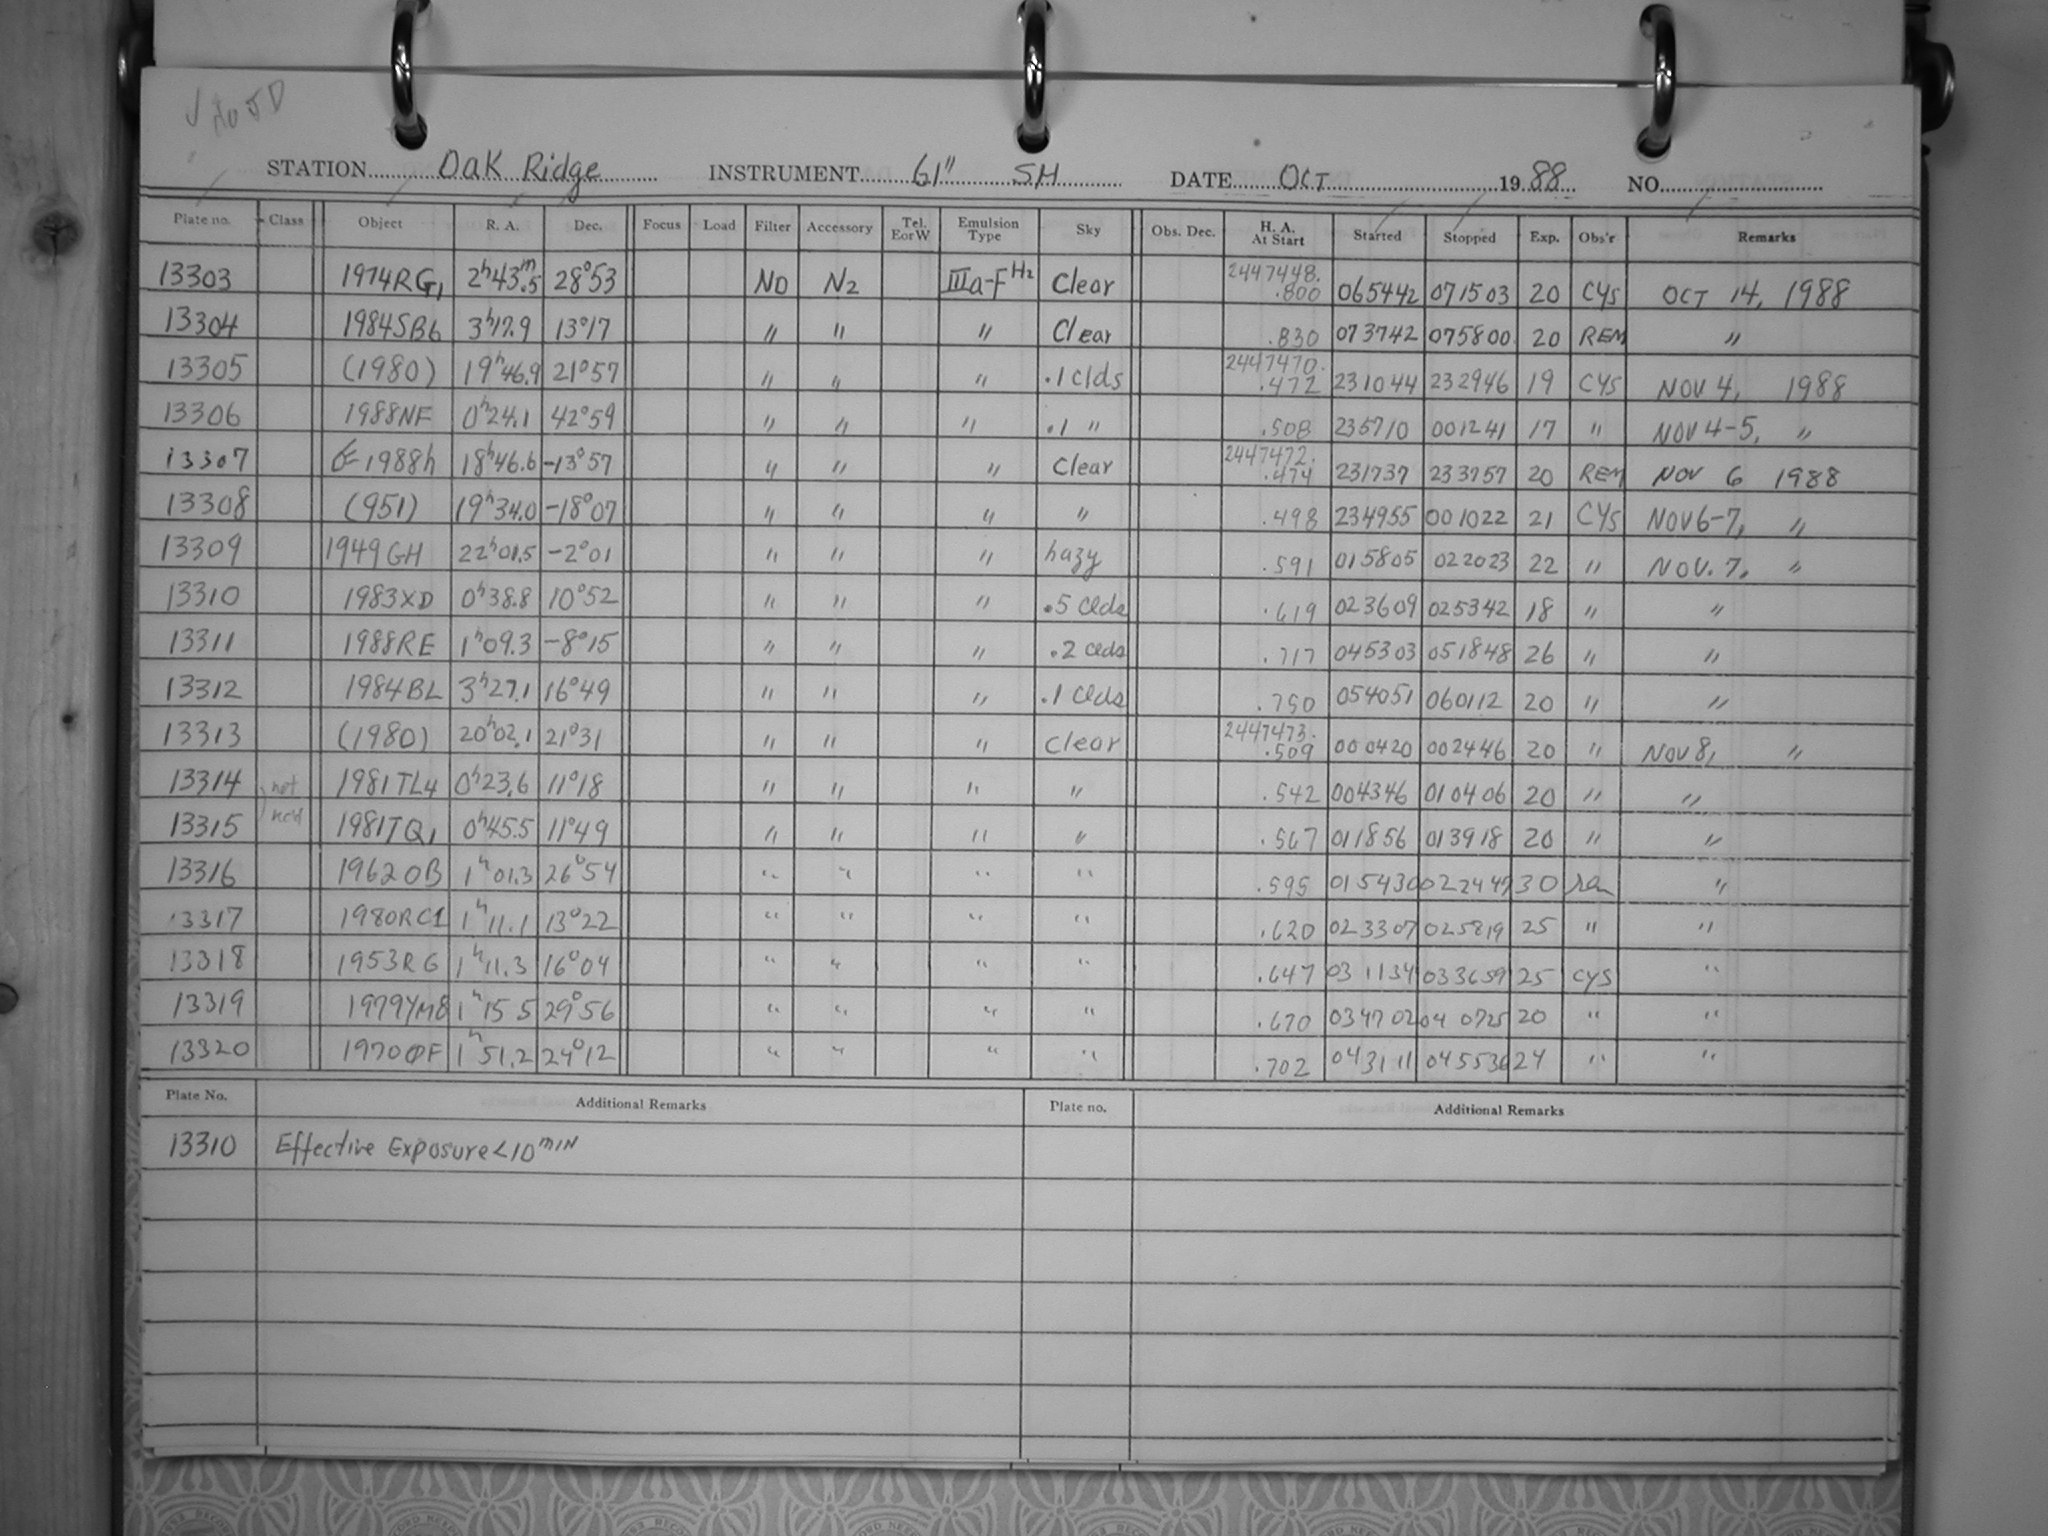 STATION Oak Ridge INSTRUMENT 61" SH DATE OCT 1988 NO.
Plate no. Class Object R. A. Dec. Focus Load Filter Accessory Tel. E or W Emulsion Type Sky Obs. Dec. H. A. At Start Started Stopped Exp. Obs'r Remarks
13303 1974RG1 2h43m.5 28°53 NO N2 IIIa-F H2 Clear 2447448. .800 065442 071503 20 CYS OCT 14, 1988
13304 1984SB6 3h17.9 13°17 " " " Clear .830 073742 075800 20 REM "
13305 (1980) 19h46.9 21°57 " " " .1 Clds 2447470. .472 231044 232946 19 CYS NOV 4, 1988
13306 1988NF 0h24.1 42°59 " " " .1 " .508 235710 001241 17 " NOV 4-5, "
13307 1988h 18h46.6 -13°57 " " " Clear 2447472. .474 231737 233757 20 REM NOV 6 1988
13308 (951) 19h34.0 -18°07 " " " " .498 234955 001022 21 CYS NOV 6-7, "
13309 1949GH 22h01.5 -2°01 " " " hazy .591 015805 022023 22 " NOV. 7, "
13310 1983XD 0h38.8 10°52 " " " .5 Clds .619 023609 025342 18 " "
13311 1988RE 1h09.3 -8°15 " " " .2 Clds .717 045303 051848 26 " "
13312 1984BL 3h27.1 16°49 " " " .1 Clds .750 054051 060112 20 " "
13313 (1980) 20h02.1 21°31 " " " Clear 2447473. .509 000420 002446 20 " NOV 8, "
13314 not 1981TL4 0h23.6 11°18 " " " " .542 004346 010406 20 " "
13315 1981TQ1 0h45.5 11°49 " " " " .567 011856 013918 20 " "
13316 1962OB 1h01.3 26°54 " " " " .595 015430 022449 30 rem "
13317 1980RC1 1h11.1 13°22 " " " " .620 023307 025819 25 " "
13318 1953RG 1h11.3 16°04 " " " " .647 031134 033659 25 CYS "
13319 1979YM8 1h15.5 29°56 " " " " .670 034702 040725 20 " "
13320 1970OF 1h51.2 24°12 " " " " .702 043111 045536 24 " "
Plate No. Additional Remarks Plate no. Additional Remarks
13310 Effective Exposure < 10 MIN